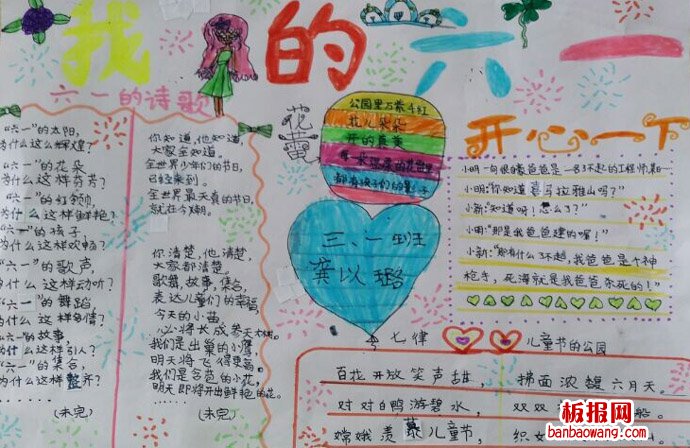 我的六一
六一的诗歌
"六一"的太阳,
为什么这么辉煌?
"六一"的花朵
为什么这样芬芳?
"六一"的红领
为什么这样鲜艳?
"六一"的孩子
为什么这样欢畅?
"六一"的歌声,
为什么这样动听?
"六一"的舞蹈,
为什么这样多情?
"六一"的故事,
为什么这样引人?
"六一"的集合,
为什么这样整齐?
......
(未完)
你知道,他知道,
大家全知道。
全世界少年们的节日,
已经来到。
全世界最天真的节日,
就在今朝。
你清楚,他清楚,
大家都清楚。
歌舞,故事,集合,
表达儿童们的幸福
今天的小苗,
必将长成参天大树。
我们是出巢的小鹰,
明天将飞得更高。
我们是含苞的小花,
明天即将开出鲜艳的花。
......
(未完)
花蕾
公园里万紫千红
花儿朵朵
开的最美
都有孩子们的影子
三、一班
龚以璐
开心一下
小明:"你知道喜马拉雅山吗?"
小新:"知道呀!怎么了?"
小明:"那是我爸爸建的喔!"
小新:"那有什么了不起,我爸爸是个神
枪手,死海就是我爸爸杀死的!"
七律 儿童节的公园
百花开放笑声甜 拂面浓馥六月天。
对对白鸭游碧水, 双双 船。
嫦娥羡慕儿童节, 织女
板报网
banbaowang.com